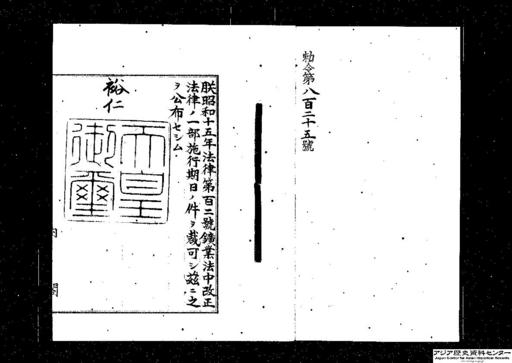 勅令第八百二十五號
朕昭和十五年法律第百二號鑛業法中改正
法律ノ一部施行期日ノ件ヲ裁可シ茲ニ之
ヲ公布セシム
裕仁
天皇御璽
内閣
アジア歴史資料センター
Japan Center for Asian Historical Records